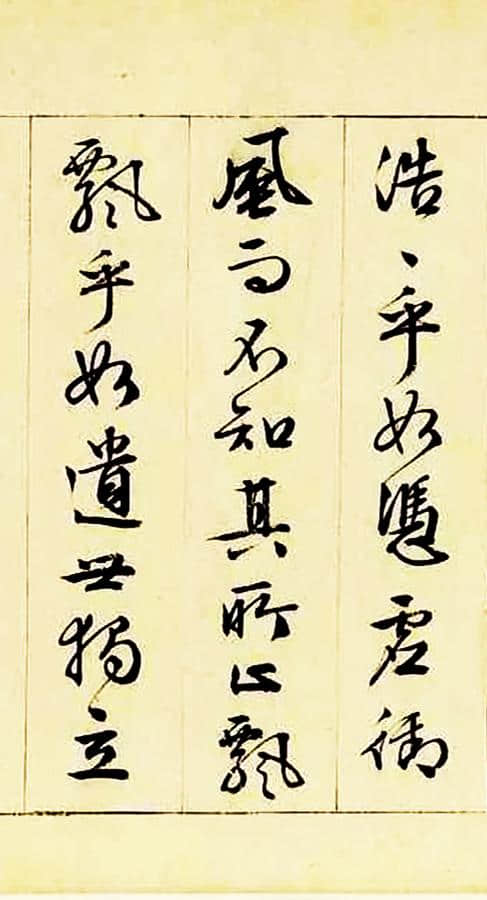 浩〻乎如憑虛御
風而不知其所止飄
飄乎如遺世獨立